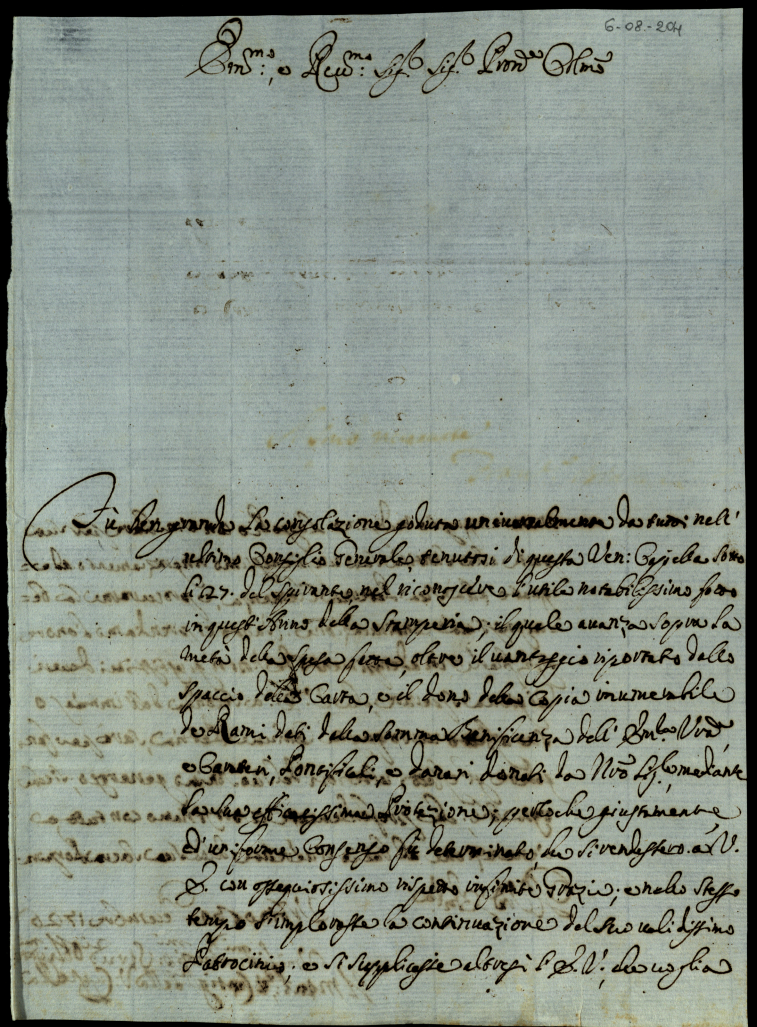 6-08-204
Em.mo: e Rev.mo: Sig.r Sig.r Pron.e Col.mo
Fù ben grande la consolazione goduta universalmente da tutti nell'
ultimo Consiglio Generale tenutosi di questa Ven: Cappella sotto
li 27. del spirante, nel riconoscere l'utile notabilissimo fatto
in quest'Anno della Stamperia; il quale avanza sopra la
metà della spesa fatta, oltre il vantaggio riportato dallo
spaccio della Carta, e il dono della Copia inumerabile
de Rami dati dalla somma Beneficenza dell' Em.za Vra,
e Pontificali, e danari donati da Nro Sig.re mediante
la sua efficacissima Protezione; perloche giustamente
d'uniforme Consenso fù determinato, che si rendessero a V.
E. con ossequiosissimo rispetto infinite Grazie; e nello stesso
tempo s'implorasse la continuazione del suo validissimo
Patrocinio; e si supplicasse altresì l'E.V., che voglia